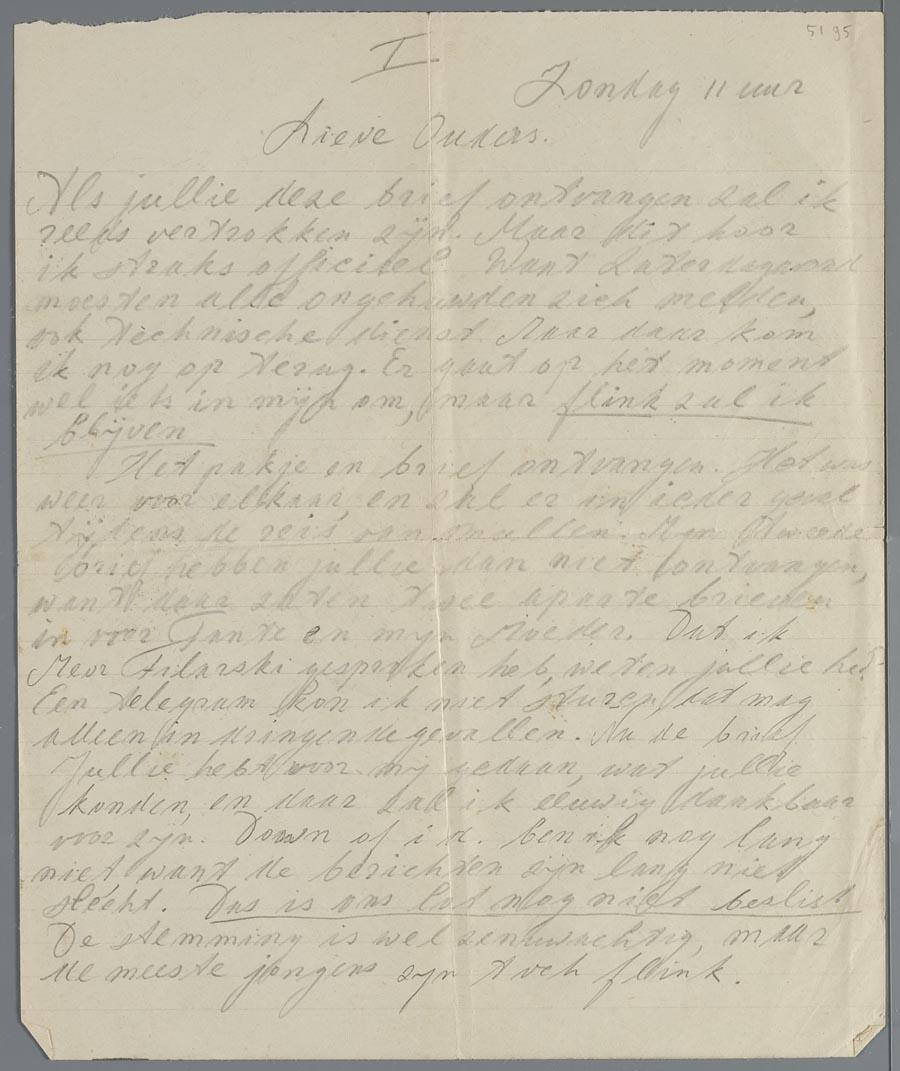 5195
I
Zondag 11 uur
Lieve Ouders.
Als jullie deze brief ontvangen zal ik
reeds vertrokken zijn. Maar dit hoor
ik straks officieel. Want Zaterdagavond
moesten alle ongehuwden zich melden,
ook technische dienst. Maar daar kom
ik nog op terug. Er gaat op het moment
wel iets in mijn om, maar flink zal ik
blijven
Het pakje en brief ontvangen. Het was
weer voor elkaar, en zal er in ieder geval
tijdens de reis van smullen. Mijn tweede
brief hebben jullie dan niet ontvangen,
want daar zaten twee aparte brieven
in voor Tante en mijn Moeder. Dat ik
Mevr Filarski gesproken heb, weten jullie het?
Een telegram kon ik niet sturen, dat mag
alleen in dringende gevallen. Na de brief
Jullie hebt voor mij gedaan, wat jullie
konden, en daar zal ik eeuwig dankbaar
voor zijn. Down of i d. ben ik nog lang
niet want de berichten zijn lang niet
slecht. Dus is ons lot nog niet beslist
De stemming is wel zenuwachtig, maar
de meeste jongens zijn toch flink.